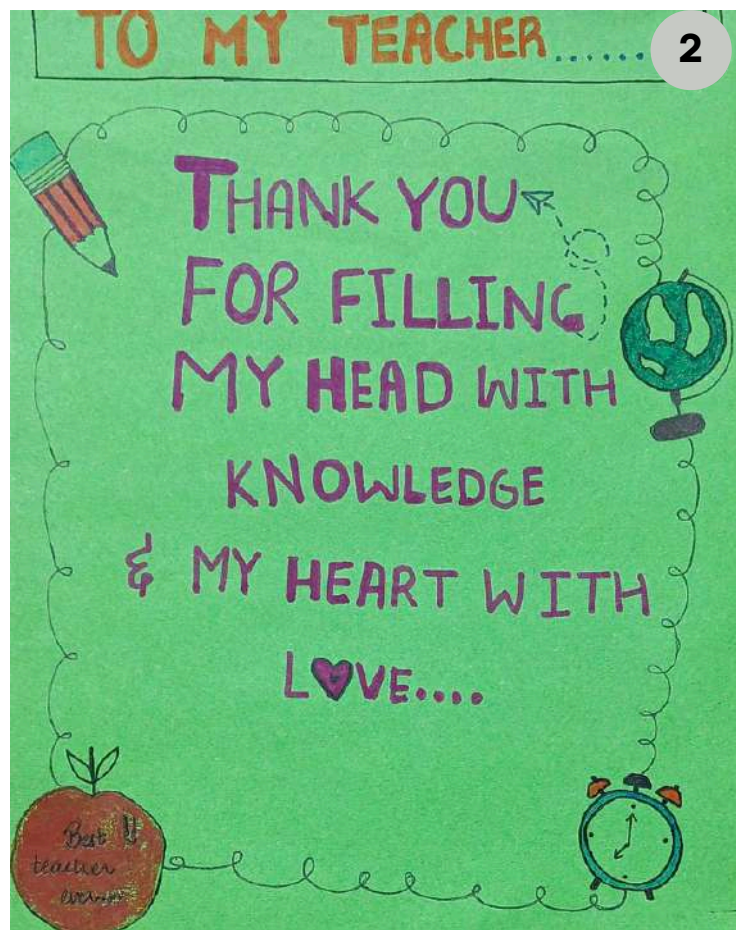 TO MY TEACHER......
2
THANK YOU
FOR FILLING
MY HEAD WITH
KNOWLEDGE
& MY HEART WITH
LOVE....
Best !!
teacher
ever